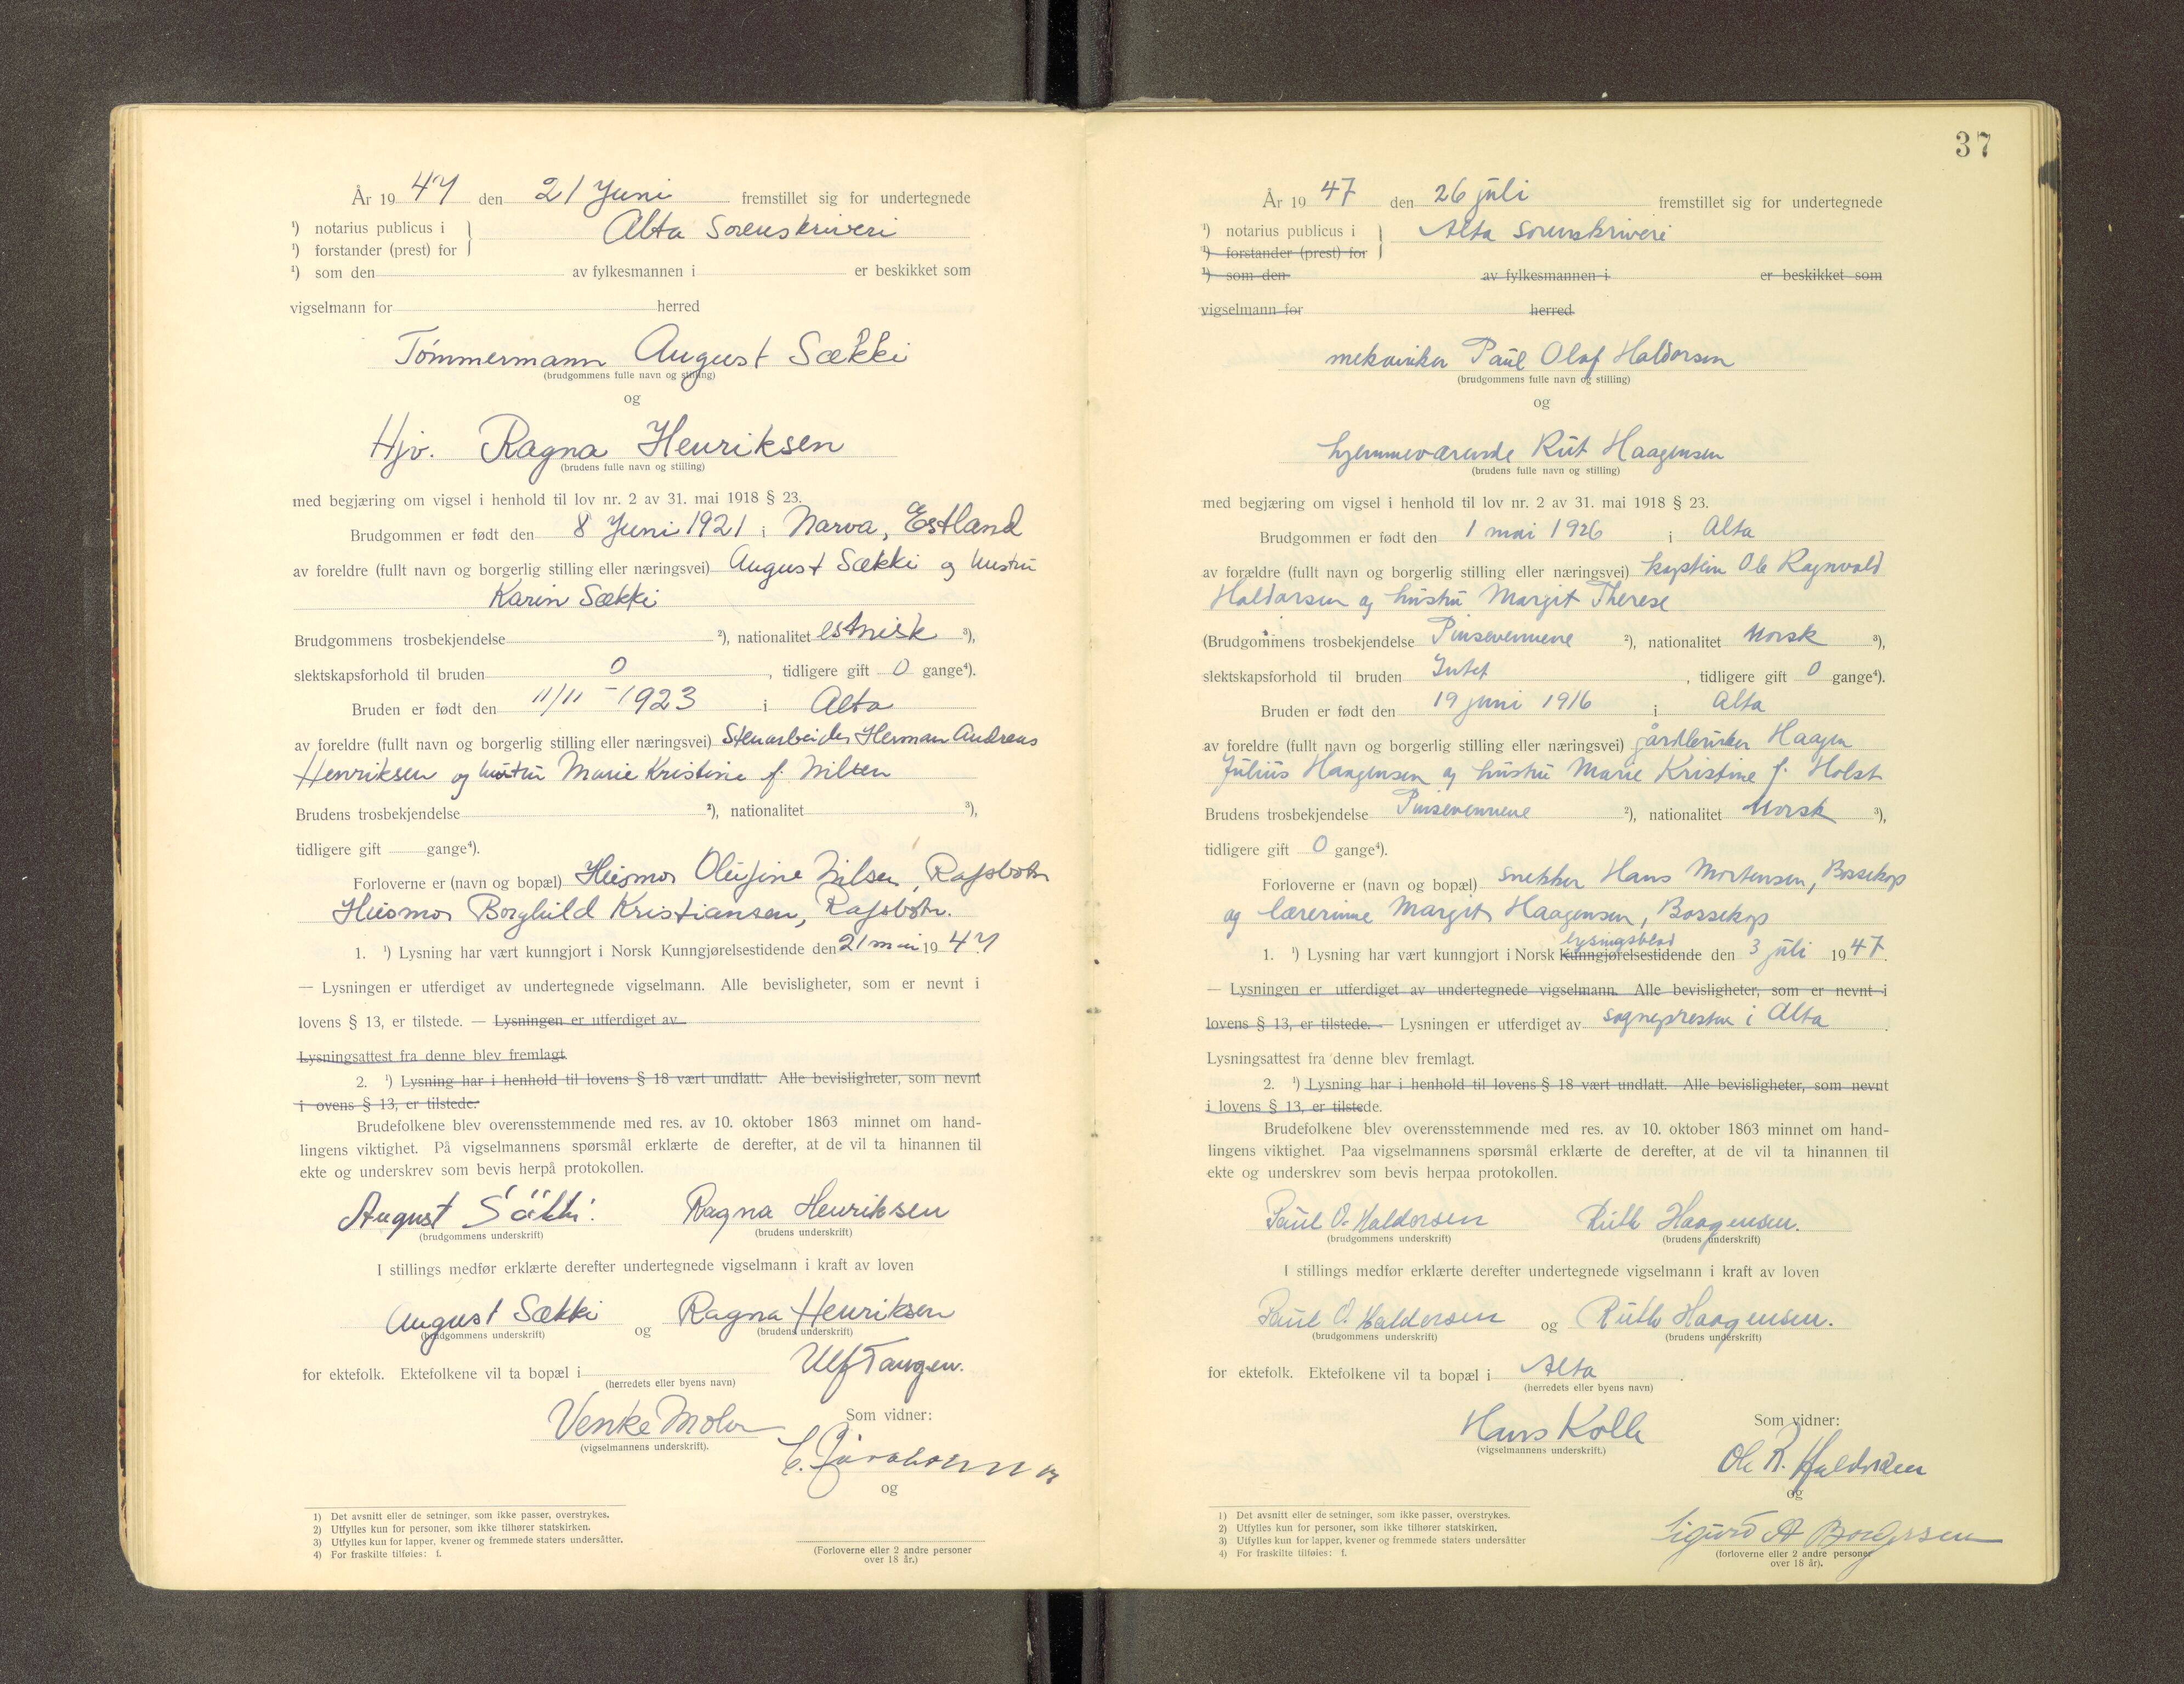 År 19 47 den 21 Juni fremstillet sig for undertegnede
¹) notarius publicus i } Alta Sorenskriveri
¹) forstander (prest) for
¹) som den av fylkesmannen i er beskikket som
vigselmann for herred
Tömmermann August Sækki
(brudgommens fulle navn og stilling)
og
Hjv. Ragna Henriksen
(brudens fulle navn og stilling)
med begjæring om vigsel i henhold til lov nr. 2 av 31. mai 1918 § 23.
Brudgommen er født den 8 Juni 1921 i Narva, Estland
av foreldre (fullt navn og borgerlig stilling eller næringsvei) August Sækki og hustru
Karin Sækki
Brudgommens trosbekjendelse ²), nationalitet estnisk ³),
slektskapsforhold til bruden 0, tidligere gift 0 gange⁴).
Bruden er født den 11/11 - 1923 i Alta
av foreldre (fullt navn og borgerlig stilling eller næringsvei) Stenarbeider Herman Andreas
Henriksen og hustru Marie Kristine f. Nilsen
Brudens trosbekjendelse ²), nationalitet ³),
tidligere gift gange⁴).
Forloverne er (navn og bopæl) Husmor Olufine Nilsen, Rafsbotn
Husmor Borghild Kristiansen, Rafsbotn.
1. ¹) Lysning har vært kunngjort i Norsk Kunngjørelsestidende den 21 mai 19 47
— Lysningen er utferdiget av undertegnede vigselmann. Alle bevisligheter, som er nevnt i
lovens § 13, er tilstede. — Lysningen er utferdiget av
Lysningsattest fra denne blev fremlagt.
2. ¹) Lysning har i henhold til lovens § 18 vært undlatt. Alle bevisligheter, som nevnt
i ovens § 13, er tilstede.
Brudefolkene blev overensstemmende med res. av 10. oktober 1863 minnet om hand-
lingens viktighet. På vigselmannens spørsmål erklærte de derefter, at de vil ta hinannen til
ekte og underskrev som bevis herpå protokollen.
August Säkki. Ragna Henriksen
(brudgommens underskrift) (brudens underskrift)
I stillings medfør erklærte derefter undertegnede vigselmann i kraft av loven
August Sækki og Ragna Henriksen
(brudgommens underskrift) (brudens underskrift)
for ektefolk. Ektefolkene vil ta bopæl i Ulf Tangen.
(herredets eller byens navn)
Venke Mohr Som vidner:
(vigselmannens underskrift).
og
1) Det avsnitt eller de setninger, som ikke passer, overstrykes.
2) Utfylles kun for personer, som ikke tilhører statskirken.
3) Utfylles kun for lapper, kvener og fremmede staters undersåtter.
4) For fraskilte tilføies: f.
(Forloverne eller 2 andre personer
over 18 år.)
37
År 19 47 den 26 juli fremstillet sig for undertegnede
¹) notarius publicus i } Alta sorenskriveri
¹) forstander (prest) for
¹) som den av fylkesmannen i er beskikket som
vigselmann for herred
mekaniker Paul Olaf Haldorsen
(brudgommens fulle navn og stilling)
og
hjemmeværende Rut Haagensen
(brudens fulle navn og stilling)
med begjæring om vigsel i henhold til lov nr. 2 av 31. mai 1918 § 23.
Brudgommen er født den 1 mai 1926 i Alta
av forældre (fullt navn og borgerlig stilling eller næringsvei) kaptein Ole Ragnvald
Haldorsen og hustru Margit Therese
(Brudgommens trosbekjendelse Pinsevennene ²), nationalitet Norsk ³),
slektskapsforhold til bruden Intet, tidligere gift 0 gange⁴).
Bruden er født den 19 juni 1916 i Alta
av foreldre (fullt navn og borgerlig stilling eller næringsvei) gårdbruker Haagen
Julius Haagensen og hustru Marie Kristine f. Holst
Brudens trosbekjendelse Pinsevennene ²), nationalitet Norsk ³),
tidligere gift 0 gange⁴).
Forloverne er (navn og bopæl) snekker Hans Mortensen, Bossekop
og lærerinne Margit Haagensen, Bossekop
lysingsblad
1. ¹) Lysning har vært kunngjort i Norsk Kunngjørelsestidende den 3 juli 19 47.
— Lysningen er utferdiget av undertegnede vigselmann. Alle bevisligheter, som er nevnt i
lovens § 13, er tilstede. — Lysningen er utferdiget av sognepresten i Alta.
Lysningsattest fra denne blev fremlagt.
2. ¹) Lysning har i henhold til lovens § 18 vært undlatt. Alle bevisligheter, som nevnt
i lovens § 13, er tilstede.
Brudefolkene blev overensstemmende med res. av 10. oktober 1863 minnet om hand-
lingens viktighet. Paa vigselmannens spørsmål erklærte de derefter, at de vil ta hinannen til
ekte og underskrev som bevis herpaa protokollen.
Paul O. Haldorsen Ruth Haagensen.
(brudgommens underskrift) (brudens underskrift)
I stillings medfør erklærte derefter undertegnede vigselmann i kraft av loven
Paul O. Haldorsen og Ruth Haagensen.
(brudgommens underskrift) (brudens underskrift)
for ektefolk. Ektefolkene vil ta bopæl i Alta.
(herredets eller byens navn)
Hans Kolle Som vidner:
(vigselmannens underskrift.)
Ole R. Haldorsen
og
Sigurd A Borgersen
1) Det avsnitt eller de setninger, som ikke passer, overstrykes.
2) Utfylles kun for personer, som ikke tilhører statskirken.
3) Utfylles kun for lapper, kvener og fremmede staters undersåtter
4) For fraskilte tilføies: f.
(forloverne eller 2 andre personer
over 18 år).